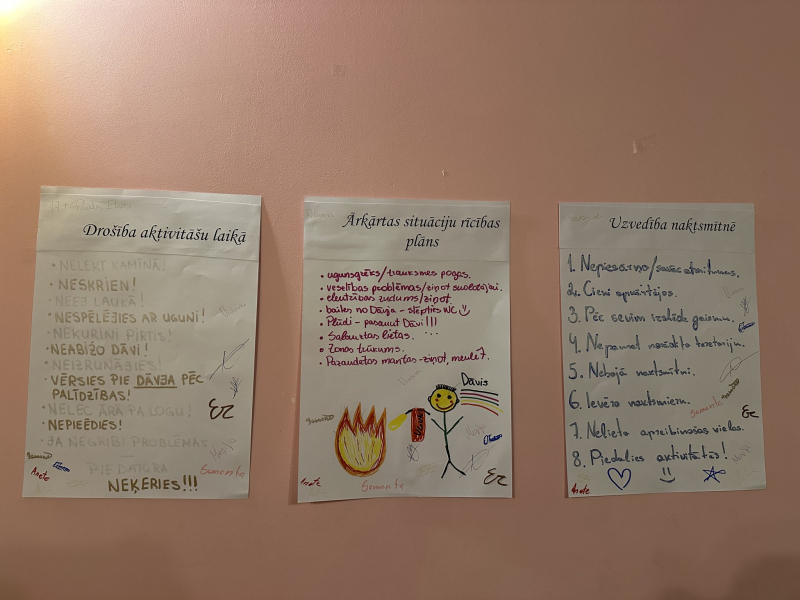 Drošība aktivitāšu laikā
• NELEKT KAMĪNĀ!
• NESKRIEN!
• NEEJ LAUKĀ!
• NESPĒLĒJIES AR UGUNI!
• NEKURINI PIRTIS!
• NEABIŽO DĀVI!
• NEIZRUNĀJIES!
• VĒRSIES PIE DĀVJA PĒC
PALĪDZĪBAS!
• NELEC ĀRĀ PA LOGU!
• NEPIEĒDIES!
• JA NEGRIBI PROBLĒMAS
PIE DATORA
NEĶERIES!!!
Anete
Samanta
Ārkārtas situāciju rīcības
plāns
• ugunsgrēks/trauksmes pogas.
• veselības problēmas/ziņot
• elektrības zudums/ziņot.
• bailes no Dāvja - slēpties WC
• Plūdi - pasaukt Dāvi!!!
• Salauztas lietas.
• Zonas trūkums.
• Pazaudētas mantas - ziņot, meklē.
Dāvis
Anete
Samanta
Uzvedība naktsmītnē
1. Nepiesārņo/savāc atkritumus.
2. Cieni apkārtējos.
3. Pēc sevim izslēdz gaismu.
4. Nepamet norādīto teritoriju.
5. Nebojā naktsmītni.
6. Ievēro naktsmieru.
7. Nelieto apreibinošas vielas.
8. Piedalies aktivitātēs!
Samanta
Anete